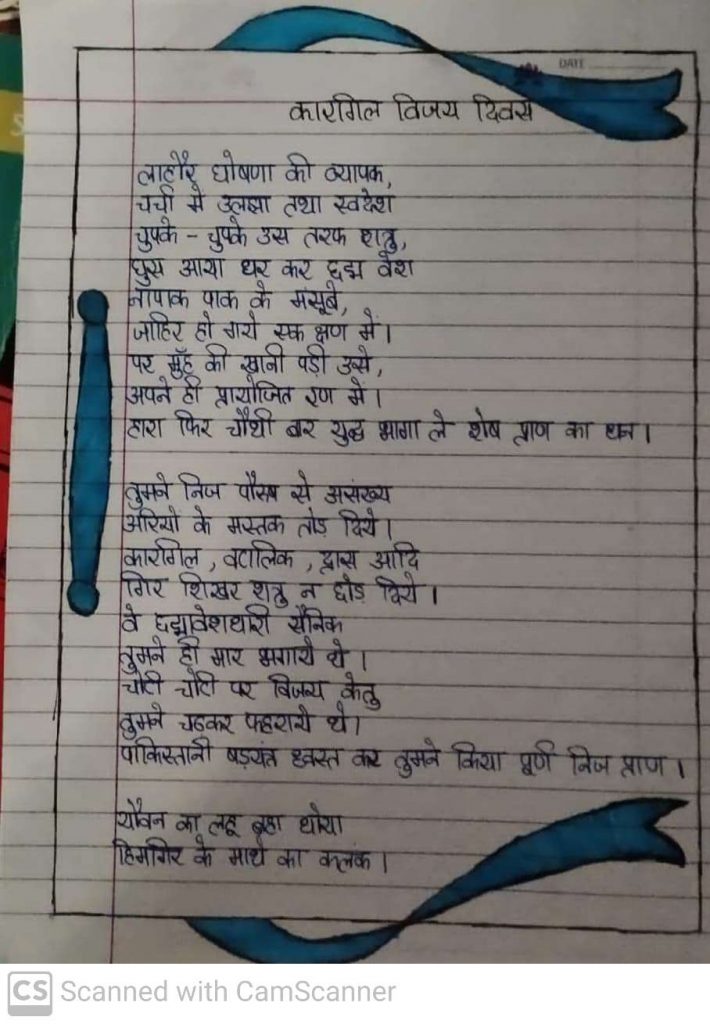 DATE
कारगिल विजय दिवस
लाहौर घोषणा की व्यापक,
चर्चा में उलझा तथा स्वदेश
चुपके - चुपके उस तरफ शत्रु,
घुस आया धर कर छद्म वेश
नापाक पाक के मंसूबे,
जाहिर हो गये एक क्षण में।
पर मुँह की खानी पड़ी उसे,
अपने ही प्रायोजित रण में।
हारा फिर चौथी बार युद्ध भागा ले शेष प्राण का धन।
तुमने निज पौरुष से असंख्य
अरियों के मस्तक तोड़ दिये।
कारगिल, बटालिक, द्रास आदि
गिर शिखर शत्रु न छोड़ दिये।
वे छद्मवेशधारी सैनिक
तुमने ही मार भगाये थे।
चोटी चोटी पर विजय केतु
तुमने चढकर फहराये थे।
पाकिस्तानी षड़यंत्र ध्वस्त कर तुमने किया पूर्ण निज प्राण।
यौवन का लहू बहा धोया
हिमगिर के माथे का कलंक।
CS Scanned with CamScanner